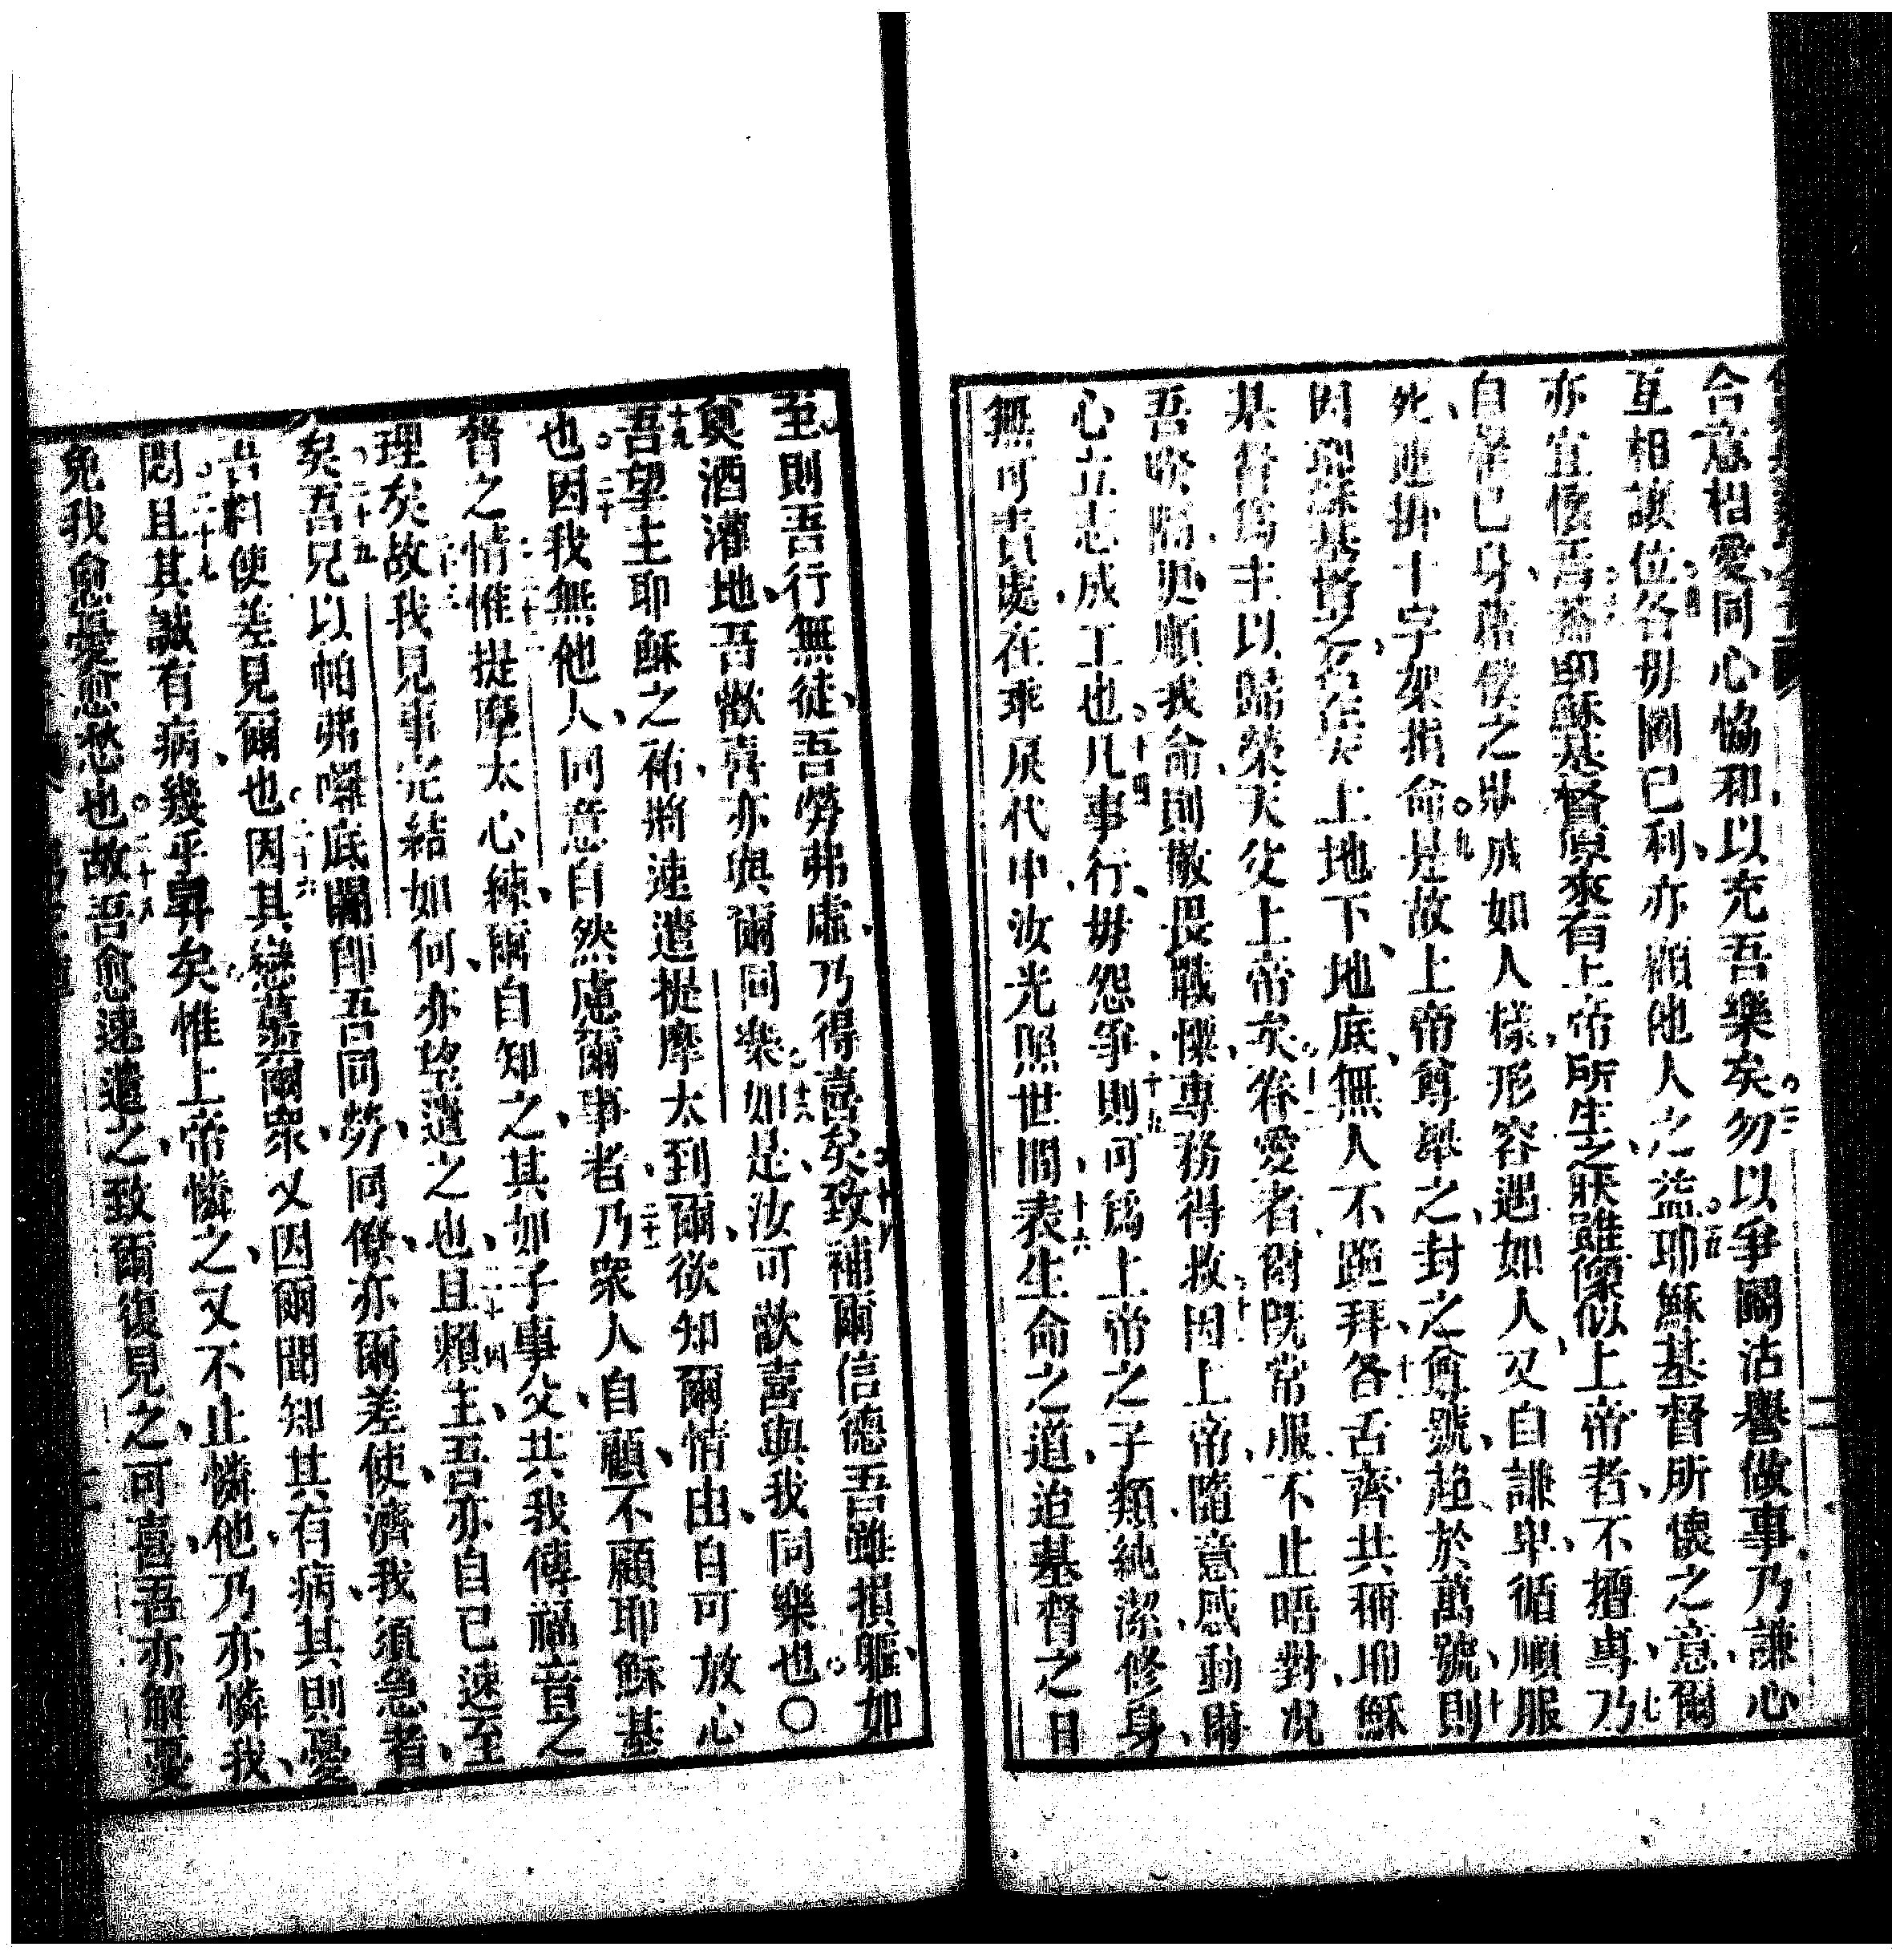 合意相愛、同心恊和以充吾樂矣○三勿以爭鬬沽譽做事、乃謙心
互相讓位、○四各毋圖已利、亦顧他人之益○五耶穌基督所懷之意、爾
亦宜懷焉○六蓋耶穌基督原來有上帝所生之狀、雖像似上帝者、不擅專、○七乃
自卑已身、取僕之狀成如人樣、形容遇如人、又自謙卑、循順服
死、連掛十字架捐命○九是故上帝尊舉之、封之尊號、超於萬號、○十則
因耶穌基督之名、在天上地下、地底、無人不跪拜、○十一各舌齊共稱耶穌
基督為主以歸榮天父上帝矣○十二眷愛者、爾既常服、不止晤對、况
吾睽隔、更順我命、則敬畏戰慄、專務得救○十三因上帝、隨意感動爾
心立志成工也、○十四凡事行、毋怨爭、○十五則可為上帝之子類、純潔修身、
無可責處、在乖戾代中、汝光照世間、○十六表生命之道、迨基督之日
至、則吾行無徒、吾勞弗虛、乃得喜矣○十七致補爾信德、吾雖損軀、如
奠酒灌地、吾歡喜、亦與爾同樂○十八如是、汝可歡喜與我同樂也○
十九吾望主耶穌之祐、將速遣提摩太到爾、欲知爾情由、自可放心
也○二十因我無他人、同意自然慮爾事者、○二十一乃衆人自顧、不顧耶穌基
督之情○二十二惟提摩太心練、爾自知之、其如子事父、共我傳福音之
理矣○二十三故我見事完結如何、亦望遣之也、○二十四且賴主、吾亦自己速至
矣○二十五吾兄以帕弗囉底、卽吾同勞、同僚、亦爾差使、濟我須急者、
吾料使差見爾也○二十六因其戀慕爾衆、又因爾聞知其有病、其則憂
悶○二十七且其誠有病、幾乎畀矣、惟上帝憐之、又不止憐他、乃亦憐我、
免我愈憂愈愁也○二十八故吾愈速遣之、致爾復見之、可喜、吾亦解憂